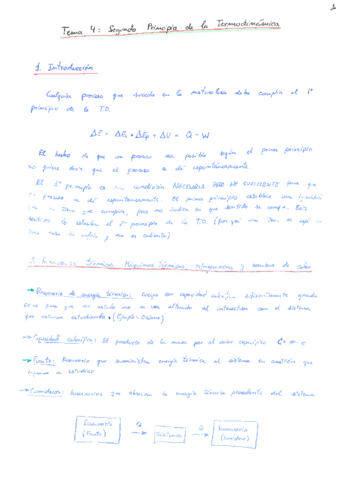 Tema 4: Segundo Principio de la Termodinámica
1. Introducción
Cualquier proceso que suceda en la naturaleza debe cumplir el 1º
principio de la T.D.
ΔE = ΔEc + ΔEp + ΔU = Q - W
El hecho de que un proceso sea posible según el primer principio
no quiere decir que el proceso se dé espontáneamente.
El 1º principio es una condición NECESARIA PERO NO SUFICIENTE para que
un proceso se dé espontáneamente. El primer principio establece una igualdad
que se tiene que cumplir, pero no indica en que sentido se cumple. Este
sentido lo establece el 2º principio de la T.D.
Térmicos. Máquinas Térmicas, refrigeradores y bombas de calor
→ Reservorio de energía térmica: Cuerpo con capacidad calorífica suficientemente grande
como para que su estado no se vea alterado al interactuar con el sistema
que estamos estudiando. (Ejemplo: Océano)
→ Capacidad calorífica: El producto de la masa por el calor específico
→ Fuente: Reservorio que suministra energía térmica al sistema en cuestión que
vayamos a estudiar
→ Sumidero: Reservorio que absorbe la energía térmica procedente del sistema
Reservorio (Fuente) Q → Sistema Q → Reservorio (sumidero)